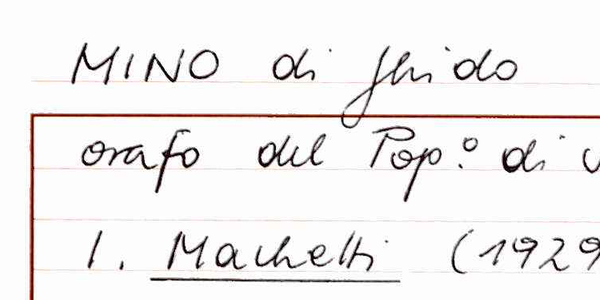 MINO di Ghido
orafo del Pop.º di
1. Machetti (1929